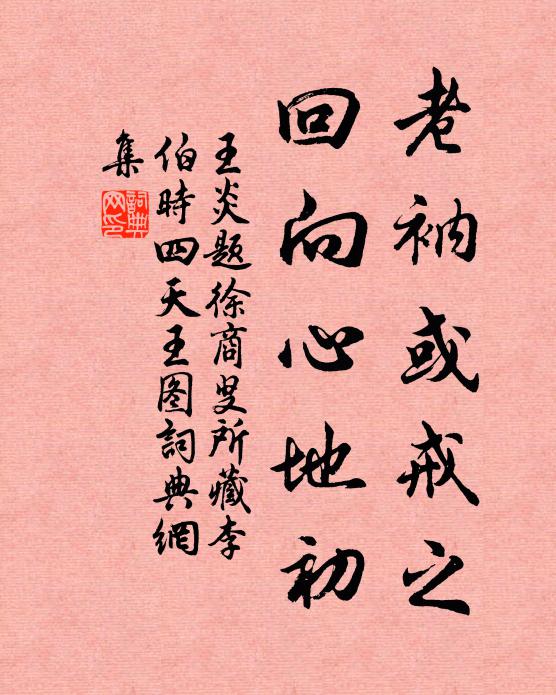 老衲或戒之
回向心地初
王炎题徐商叟所藏李
伯時四天王图詞典網
集
詞典网印